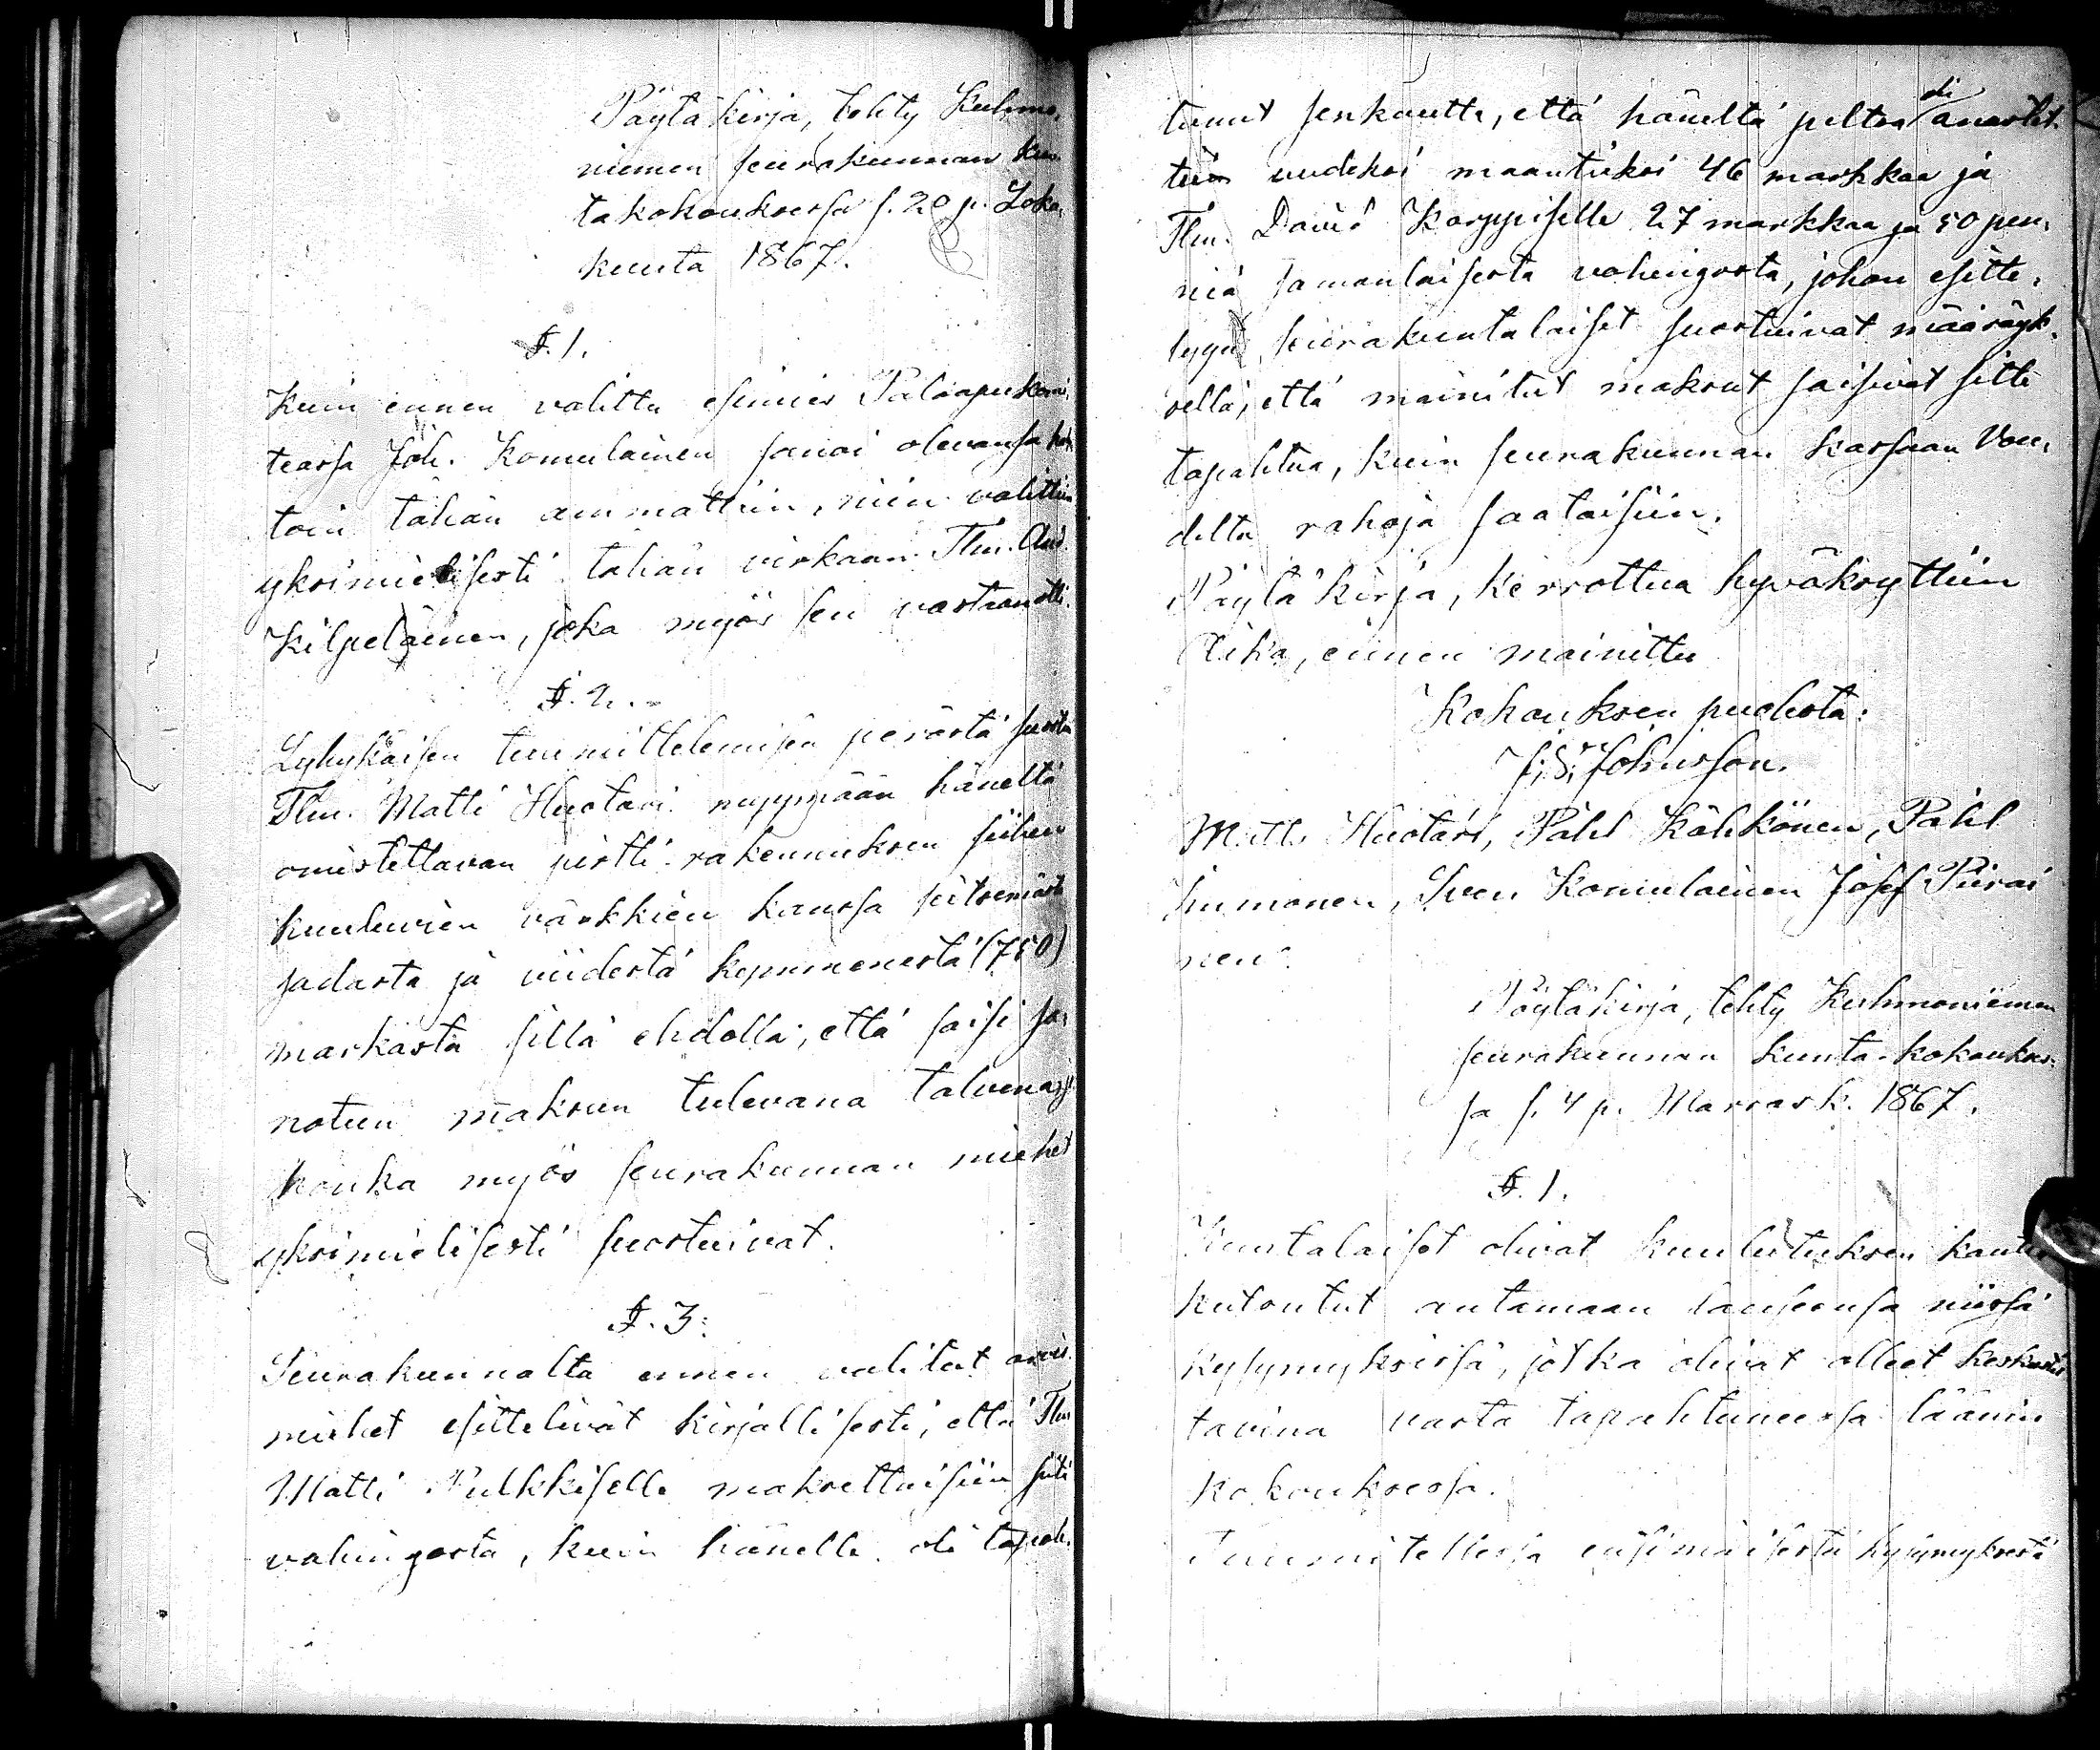 Pöytäkirja, tehty Kuhmo-
niemen seurakunnan kun-
takokouksessa s. 20 p. Loka-
kuuta 1867.
§. 1.
Kuin ennen valittu esimies Paloapukomi-
teassa Joh. Komulainen sanoi olevansa
toin tähän ammattiin, niin valittiin
yksimielisesti tähän virkaan Tlm. And.
Kilpeläinen, joka myös sen vastaanotti.
§. 2.
Lyhykäisen tuumittelemisen perästä suostu
Tlm. Matti Huotari myymään häneltä
omistettavan pirtti-rakennuksen siihen
kuuluvien värkkien kanssa seitsemästä
sadasta ja viidestä kymmenestä (750)
markasta sillä ehdolla, että saisi sa-
notun maksun tulevana talvena,
honka myös seurakunnan miehet
yksimielisesti suostuivat.
§. 3.
Seurakunnalta ennen valitut arvio-
miehet esittelivät kirjallisesti, että Tlm
Matti Pulkkiselle maksettaisiin siitä
vahingosta, kuin hänelle oli tapah-
tunut senkautta, että häneltä peltoa oli anastet-
tiin uudeksi maantieksi 46 markkaa ja
Tlm. David Karppiselle 27 markkaa ja 50 pen-
niä samanlaisesta vahingosta, johon esitte-
lyyn seurakuntalaiset suostuivat määräyk-
sellä, että mainitut maksut saisivat sitte
tapahtua, kuin seurakunnan kassaan Vou-
delta rahoja saataisiin.
Pöytäkirja, kerrottua hyväksyttiin
Aika, ennen mainittu
Kokouksen puolesta:
J. S. Johnsson.
Matts Huotari, Påhl Kähkönen, Påhl
Kinnunen, Sven Komulainen Josef Piirai
nen.
Pöytäkirja, tehty Kuhmoniemen
seurakunnan kunta-kokoukses-
sa s. 4 p. Marrask. 1867.
§. 1.
Kuntalaiset olivat kuulutuksen kautta
kutsutut antamaan lauseensa niissä
kysymyksissä, jotka olivat olleet keskustel
tavina vasta tapahtuneessa läänin
kokouksessa.
Tuumitellessa ensimäisestä kysymyksestä